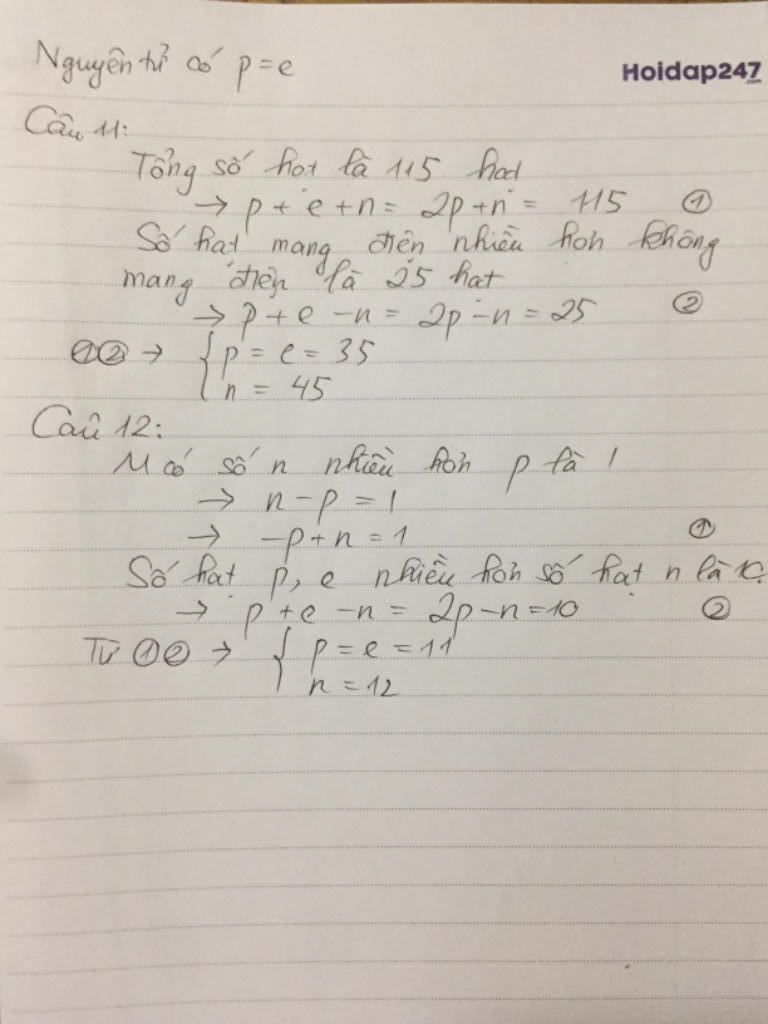 Nguyên tử có p = e
Hoidap247
Câu 11:
Tổng số hạt là 115 hạt
→ p + e + n = 2p + n = 115 ①
Số hạt mang điện nhiều hơn không
mang điện là 25 hạt
→ p + e - n = 2p - n = 25 ②
①② → { p = e = 35
n = 45
Câu 12:
M có số n nhiều hơn p là 1
→ n - p = 1
→ -p + n = 1 ①
Số hạt p, e nhiều hơn số hạt n là 10.
→ p + e - n = 2p - n = 10 ②
Từ ①② → { p = e = 11
n = 12